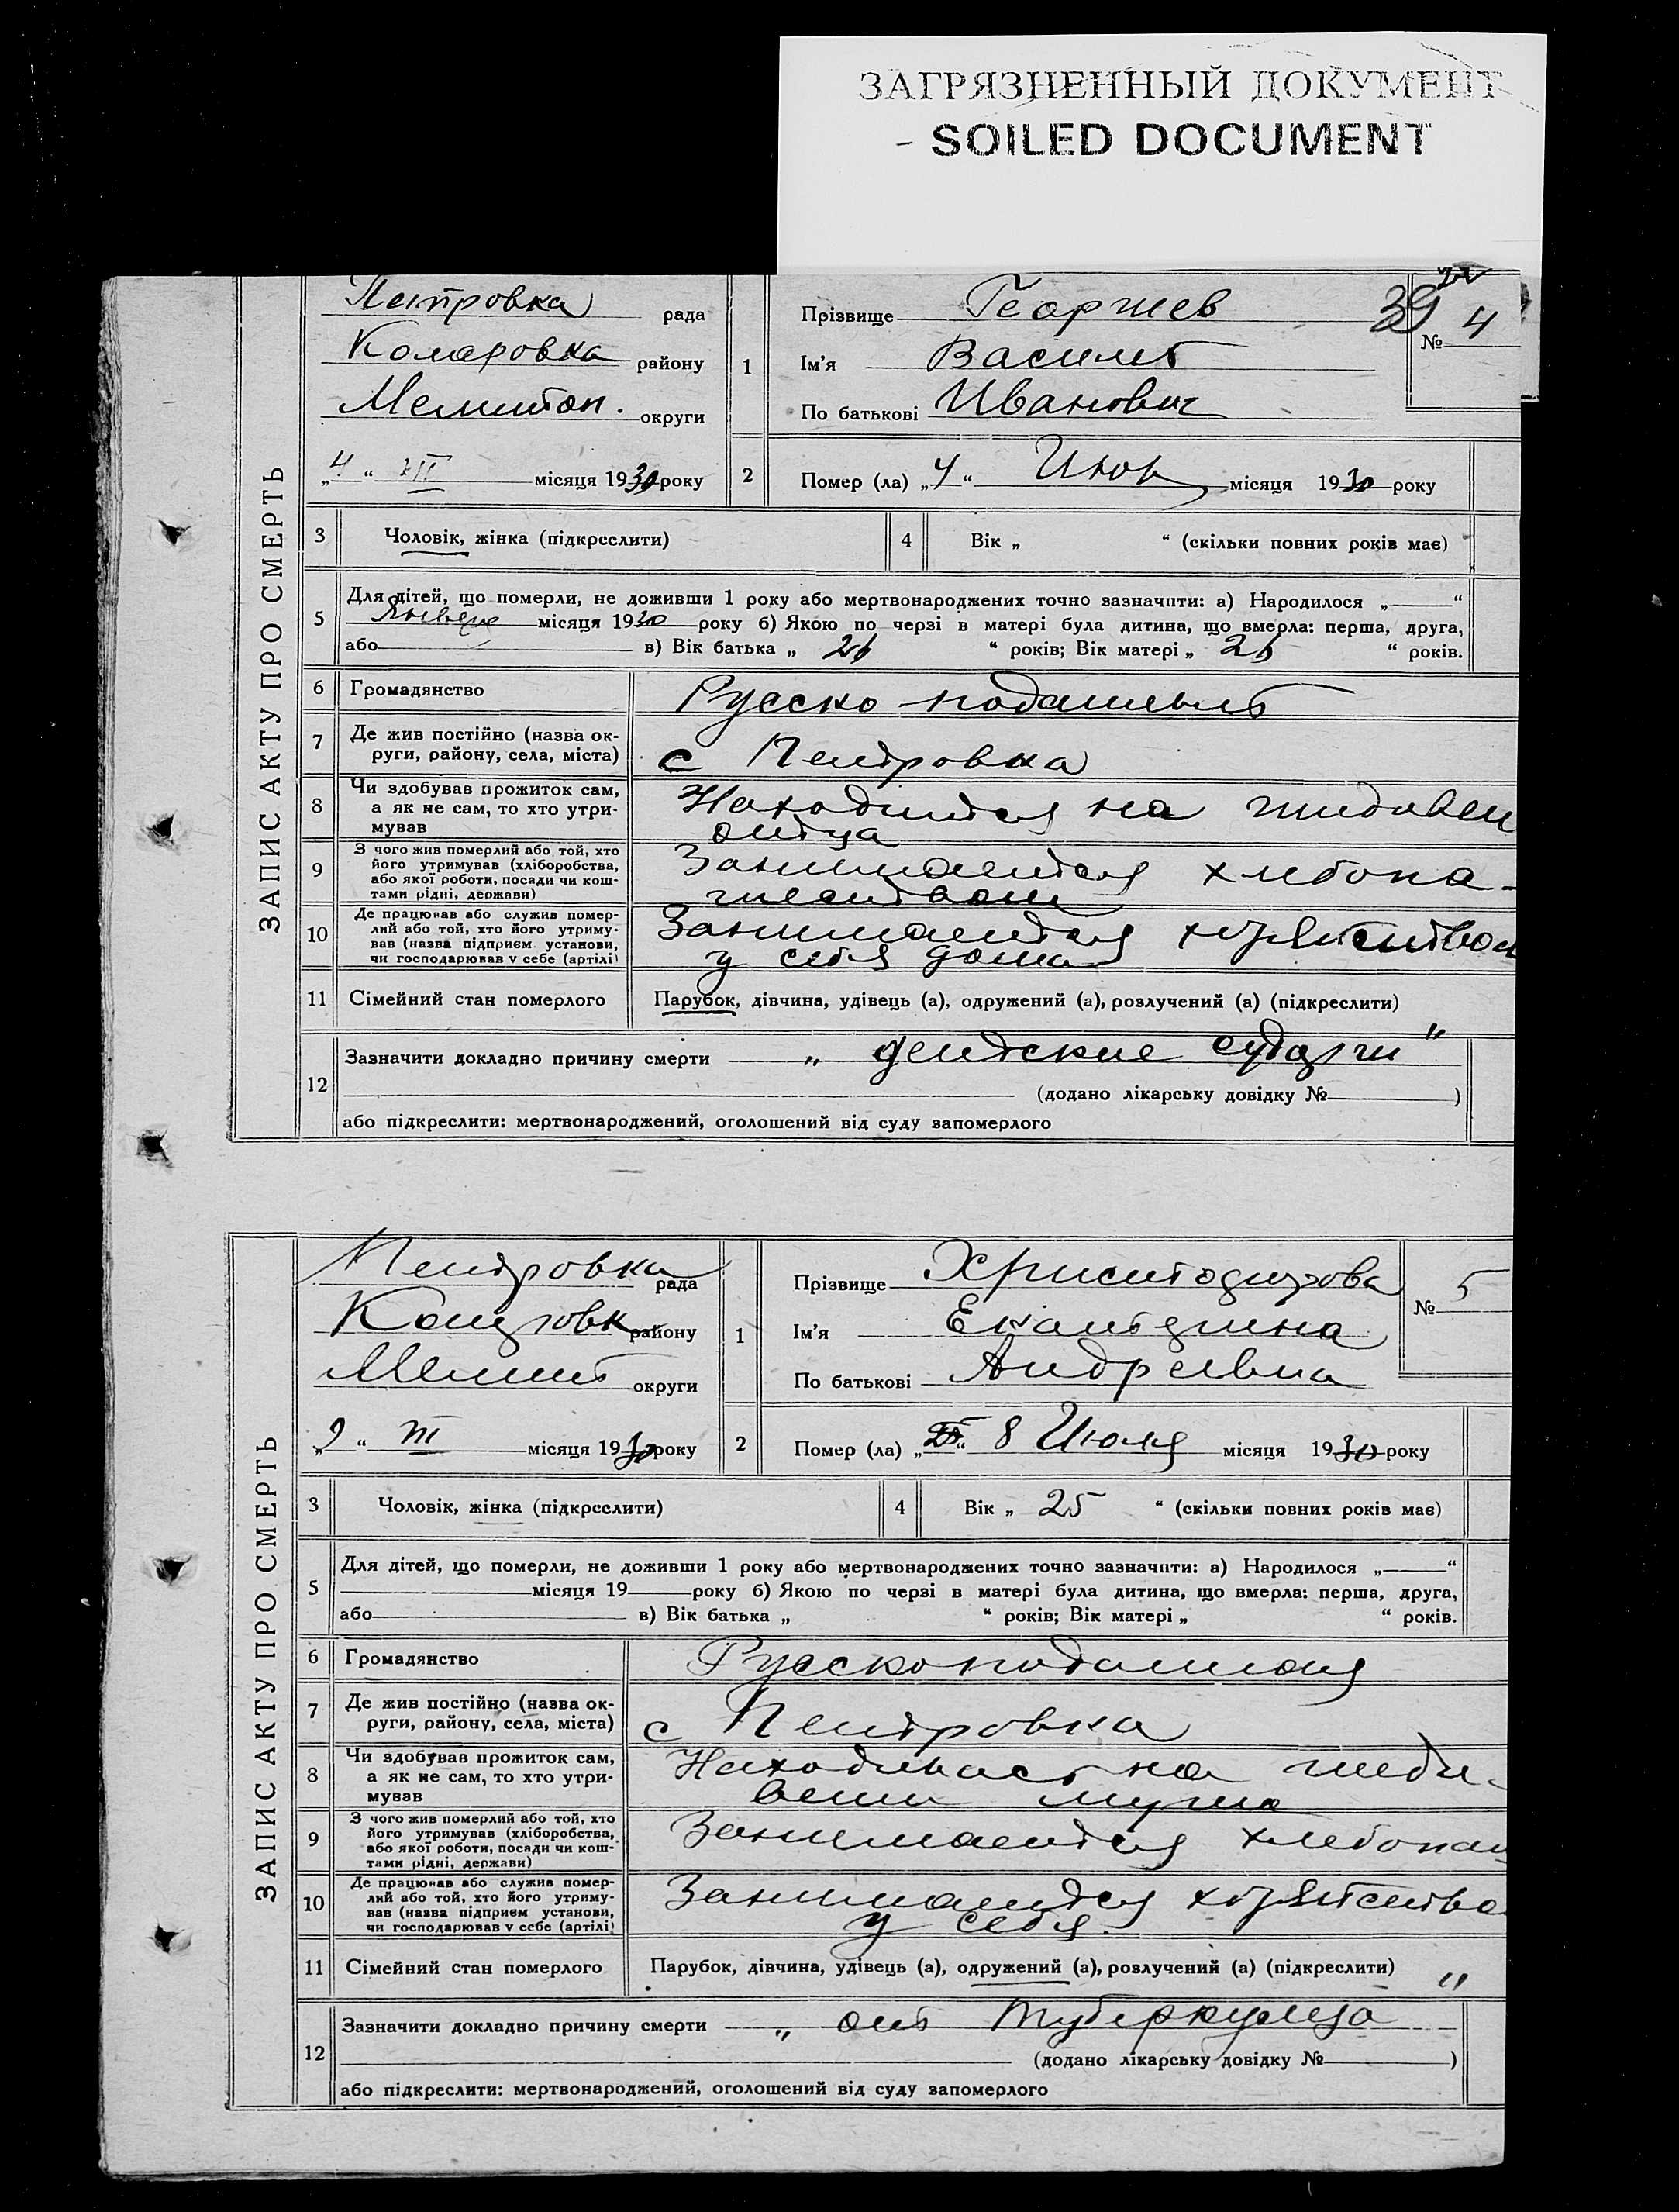 ЗАГРЯЗНЕННЫЙ ДОКУМЕНТ
- SOILED DOCUMENT
ЗАПИС АКТУ ПРО СМЕРТЬ
Петровка рада
Комаровка району
Мелитоп. округи
„4“ VII місяця 1930 року
1 Прізвище Георгиев
Ім'я Василий
По батькові Иванович
39
№ 4
2 Помер (ла) „4“ місяця 1930 року
3 Чоловік, жінка (підкреслити)
4 Вік „ “ (скільки повних років має)
5 Для дітей, що померли, не доживши 1 року або мертвонароджених точно зазначити: а) Народилося „ “
місяця 1930 року б) Якою по черзі в матері була дитина, що вмерла: перша, друга,
або в) Вік батька „ 26 “ років; Вік матері „ 26 “ років.
6 Громадянство Русско подданый
7 Де жив постійно (назва ок-
руги, району, села, міста) с Петровка
8 Чи здобував прожиток сам,
а як не сам, то хто утри-
мував
Находится на иждивен
отца
9 З чого жив померлий або той, хто
його утримував (хліборобства,
або якої роботи, посади чи кош-
тами рідні, держави)
Занимается хлебопа-
шеством
10 Де працював або служив помер-
лий або той, хто його утриму-
вав (назва підприєм. установи,
чи господарював у себе (артілі)
Занимается
у себя дома
11 Сімейний стан померлого Парубок, дівчина, удівець (а), одружений (а), розлучений (а) (підкреслити)
12 Зазначити докладно причину смерти „ детские “
(додано лікарську довідку № )
або підкреслити: мертвонароджений, оголошений від суду запомерлого
ЗАПИС АКТУ ПРО СМЕРТЬ
Петровка рада
району
Мелит округи
„9“ місяця 1930 року
1 Прізвище Христодорова
Ім'я Екатерина
По батькові Андреевна
№ 5
2 Помер (ла) „ “ 8 Июля місяця 1930 року
3 Чоловік, жінка (підкреслити)
4 Вік „ 25 “ (скільки повних років має)
5 Для дітей, що померли, не доживши 1 року або мертвонароджених точно зазначити: а) Народилося „ “
місяця 19 року б) Якою по черзі в матері була дитина, що вмерла: перша, друга,
або в) Вік батька „ “ років; Вік матері „ “ років.
6 Громадянство Русскоподданная
7 Де жив постійно (назва ок-
руги, району, села, міста) с Петровка
8 Чи здобував прожиток сам,
а як не сам, то хто утри-
мував
на
мужа
9 З чого жив померлий або той, хто
його утримував (хліборобства,
або якої роботи, посади чи кош-
тами рідні, держави)
Занимается хлебопаш
10 Де працював або служив помер-
лий або той, хто його утриму-
вав (назва підприєм. установи,
чи господарював у себе (артілі)
Занимается
у себя
11 Сімейний стан померлого Парубок, дівчина, удівець (а), одружений (а), розлучений (а) (підкреслити)
12 Зазначити докладно причину смерти „ от туберкулеза “
(додано лікарську довідку № )
або підкреслити: мертвонароджений, оголошений від суду запомерлого